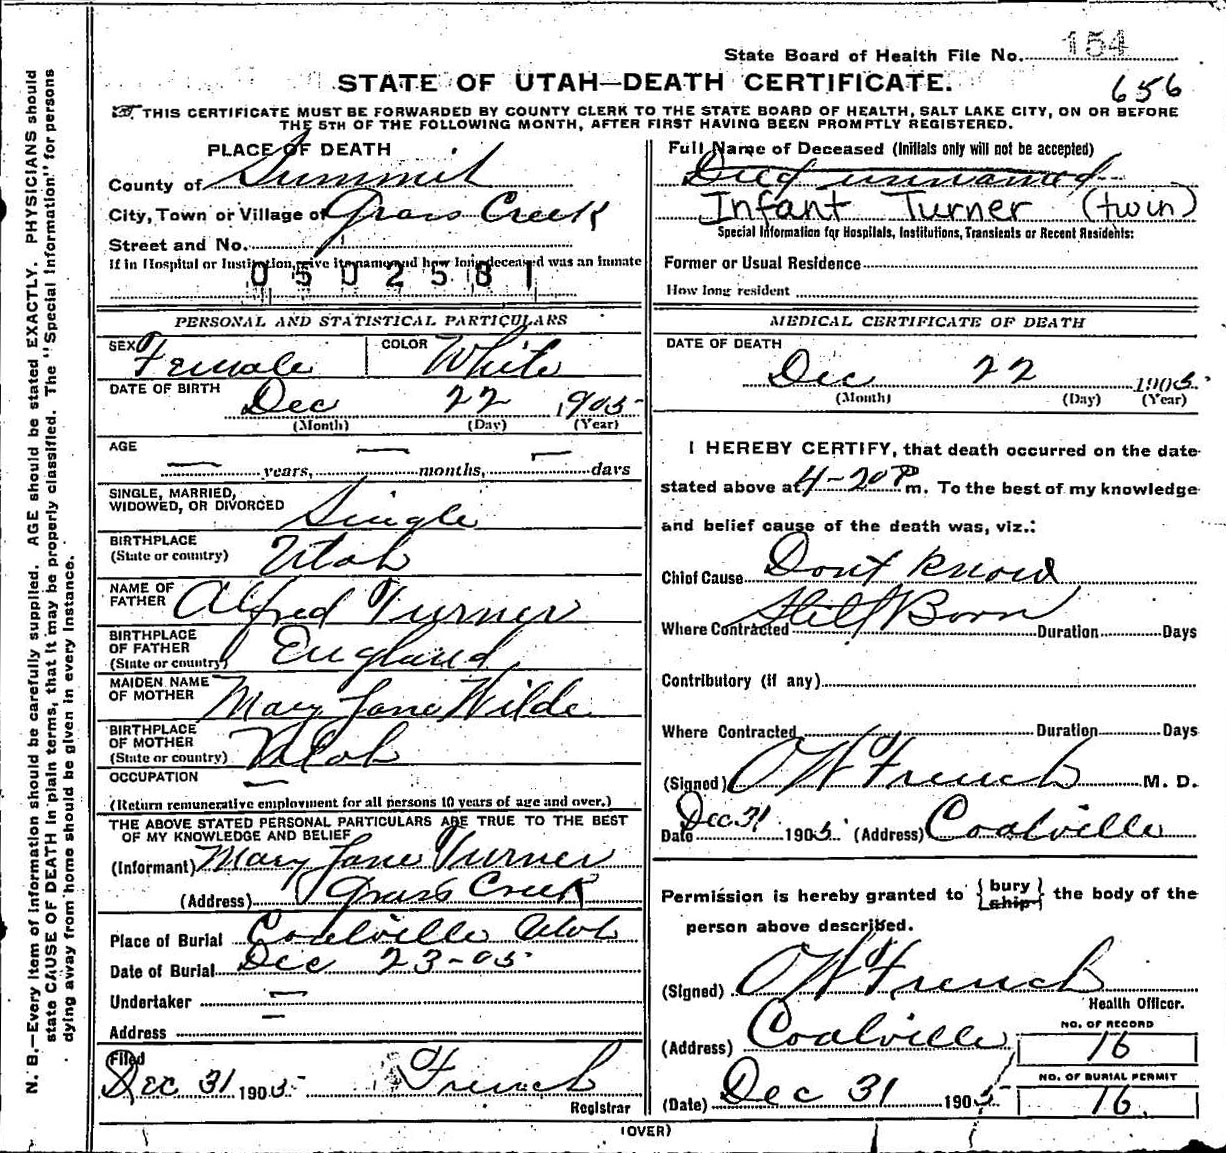 State Board of Health File No. 154
STATE OF UTAH—DEATH CERTIFICATE.
656
THIS CERTIFICATE MUST BE FORWARDED BY COUNTY CLERK TO THE STATE BOARD OF HEALTH, SALT LAKE CITY, ON OR BEFORE
THE 5TH OF THE FOLLOWING MONTH, AFTER FIRST HAVING BEEN PROMPTLY REGISTERED.
N. B.—Every item of information should be carefully supplied. AGE should be stated EXACTLY. PHYSICIANS should
state CAUSE OF DEATH in plain terms, that it may be properly classified. The "Special Information" for persons
dying away from home should be given in every instance.
PLACE OF DEATH
County of Summit
City, Town or Village of Grass Creek
Street and No.
If in Hospital or Institution, give its name and how long deceased was an inmate
0502581
PERSONAL AND STATISTICAL PARTICULARS
SEX Female COLOR White
DATE OF BIRTH Dec 22 1905
(Month) (Day) (Year)
AGE
— years, — months, — days
SINGLE, MARRIED,
WIDOWED, OR DIVORCED Single
BIRTHPLACE
(State or country) Utah
NAME OF
FATHER Alfred Turner
BIRTHPLACE
OF FATHER
(State or country) England
MAIDEN NAME
OF MOTHER Mary Jane Wilde
BIRTHPLACE
OF MOTHER
(State or country) Utah
OCCUPATION —
(Return remunerative employment for all persons 10 years of age and over.)
THE ABOVE STATED PERSONAL PARTICULARS ARE TRUE TO THE BEST
OF MY KNOWLEDGE AND BELIEF
(Informant) Mary Jane Turner
(Address) Grass Creek
Place of Burial Coalville Utah
Date of Burial Dec 23-05
Undertaker —
Address —
Filed
Dec 31 1905 French
Registrar
Full Name of Deceased (Initials only will not be accepted)
Died unnamed
Infant Turner (twin)
Special Information for Hospitals, Institutions, Transients or Recent Residents:
Former or Usual Residence
How long resident
MEDICAL CERTIFICATE OF DEATH
DATE OF DEATH
Dec 22 1905
(Month) (Day) (Year)
I HEREBY CERTIFY, that death occurred on the date
stated above at 4-20 P m. To the best of my knowledge
and belief cause of the death was, viz.:
Chief Cause Dont Know
Still Born
Where Contracted Duration Days
Contributory (if any)
Where Contracted Duration Days
(Signed) O W French M. D.
Date Dec 31 1905 (Address) Coalville
Permission is hereby granted to { bury ship } the body of the
person above described.
(Signed) O W French
Health Officer.
(Address) Coalville
NO. OF RECORD
16
(Date) Dec 31 1905
NO. OF BURIAL PERMIT
16
(OVER)